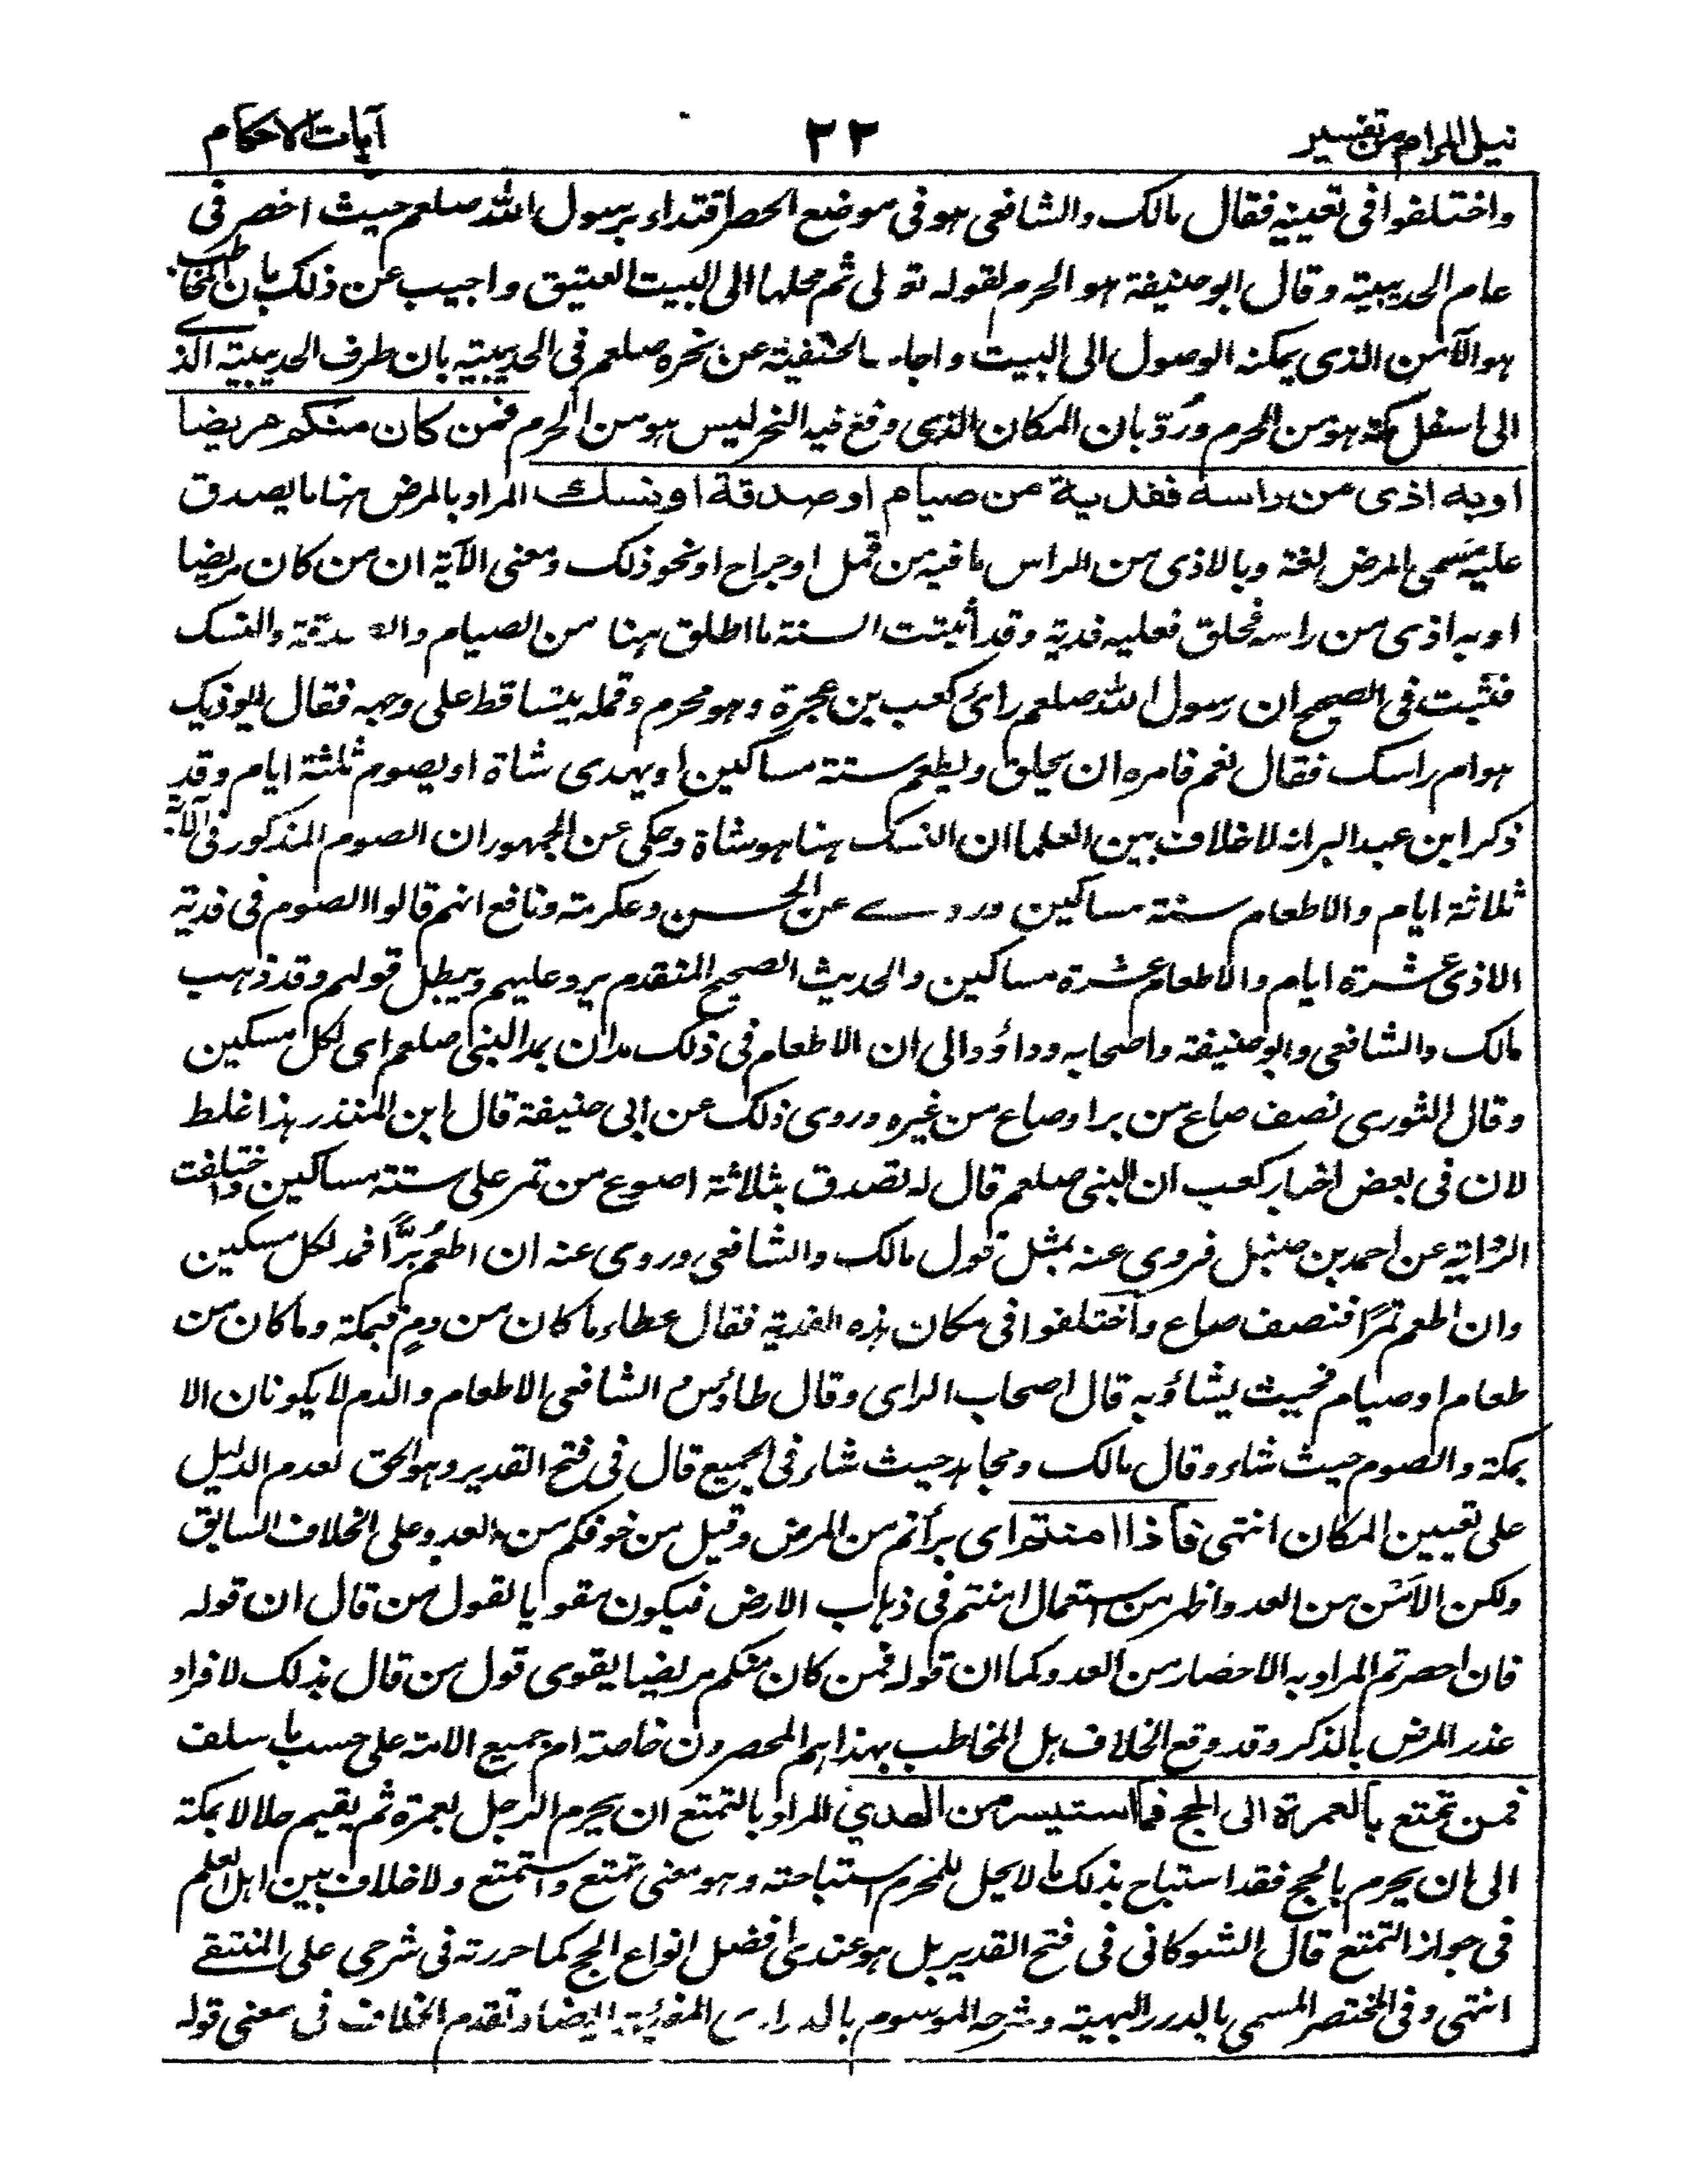 نيل المرام من تفسير ٢٢ آيات الاحكام
واختلفوا فى تعيينه فقال مالك والشافعى هو فى موضع الحصر اقتداء برسول الله صلعم حيث احصر فى
عام الحديبية وقال ابو حنيفة هو الحرم لقوله تولى ثم محلها الى البيت العتيق واجيب عن ذلك بان المخاطب
هو الآمن الذى يمكنه الوصول الى البيت واجاب الحنفية عن نحره صلعم فى الحديبية بان طرف الحديبية الذى
الى اسفل مكة هو من الحرم ورُدّ بان المكان الذى وقع فيه النحر ليس هو من الحرم فمن كان منكم مريضا
او به اذى من راسه ففدية من صيام او صدقة او نسك المراد بالمرض هنا ما يصدق
عليه مسمى المرض لغة وبالاذى من الراس ما فيه من قمل او جراح او نحو ذلك ومعنى الآية ان من كان مريضا
او به اذى من راسه فحلق فعليه فدية وقد أثبتت السنة ما اطلق هنا من الصيام والصدقة والنسك
فثبت فى الصحيح ان رسول الله صلعم رائ كعب بن عجرة وهو محرم وقمله يتساقط على وجهه فقال ايوذيك
هوام راسك فقال نعم فامره ان يحلق ويطعم ستة مساكين او يهدى شاة او يصوم ثلثة ايام وقد
ذكر ابن عبد البر انه لا خلاف بين العلما ان النسك هنا هو شاة وحكى عن الجمهور ان الصوم المذكور فى الآية
ثلاثة ايام والاطعام ستة مساكين وروى عن الحسن وعكرمة ونافع انهم قالوا الصوم فى فدية
الاذى عشرة ايام والاطعام عشرة مساكين والحديث الصحيح المتقدم يرد عليهم ويبطل قولهم وقد ذهب
مالك والشافعى وابو حنيفة واصحابه وداؤد الى ان الاطعام فى ذلك مدان بمد النبى صلعم اى لكل مسكين
وقال الثورى نصف صاع من بر او صاع من غيره وروى ذلك عن ابى حنيفة قال ابن المنذر هذا غلط
لان فى بعض اخبار كعب ان النبى صلعم قال له تصدق بثلاثة اصوع من تمر على ستة مساكين واختلفت
الرواية عن احمد بن حنبل فروى عنه بمثل قول مالك والشافعى وروى عنه ان اطعم بُرًّا فمد لكل مسكين
وان اطعم تمرًا فنصف صاع واختلفوا فى مكان هذه الفدية فقال عطاء ما كان من دمٍ فبمكة وما كان من
طعام او صيام فحيث يشاؤ به قال اصحاب الراى وقال طاؤس م الشافعى الاطعام والدم لا يكونان الا
بمكة والصوم حيث شاء وقال مالك ومجاهد حيث شاء فى الجميع قال فى فتح القدير وهو الحق لعدم الدليل
على تعيين المكان انتهى فاذا امنتم اى برأتم من المرض وقيل من خوفكم من العدو على الخلاف السابق
ولكن الآمن من العدو اظهر من استعمال امنتم فى ذهاب الارض فيكون مقويا لقول من قال ان قوله
فان احصرتم المراد به الاحصار من العدو كما ان قوله فمن كان منكم مريضا يقوى قول من قال بذلك لافراد
عذر المرض بالذكر وقد وقع الخلاف هل المخاطب بهذا هم المحصرون خاصة ام جميع الامة على حسب ما سلف
فمن تمتع بالعمرة الى الحج فما استيسر من الهدي المراد بالتمتع ان يحرم الرجل بعمرة ثم يقيم حلالا بمكة
الى ان يحرم بالحج فقد استباح بذلك ما لا يحل للمحرم استباحته وهو معنى تمتع واستمتع ولا خلاف بين اهل العلم
فى جواز التمتع قال الشوكانى فى فتح القدير بل هو عندى افضل انواع الحج كما حررته فى شرحى على المنتقى
انتهى وفى المختصر المسمى بالدرر البهية وشرحه الموسوم بالدرارى المضية ايضا وتقدم الخلاف فى معنى قوله